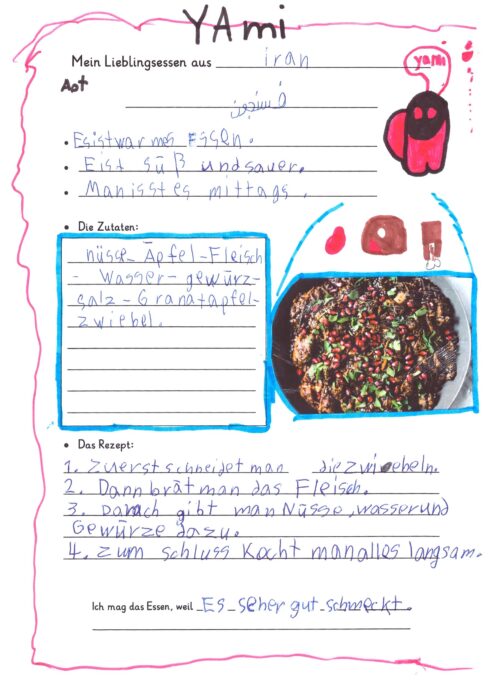 YAmi
Mein Lieblingsessen aus iran
yami
Apt
فسنجون
• Es ist warmes Essen.
• E ist süß und sauer.
• Man isst es mittags.
• Die Zutaten:
nüsse - Äpfel - Fleisch
- Wasser - gewürz -
salz - Granatapfel -
zwiebel.
• Das Rezept:
1. zuerst schneidet man die zwiebeln.
2. Dann brät man das Fleisch.
3. Danach gibt man Nüsse, wasser und
Gewürze dazu.
4. zum schluss kocht man alles langsam.
Ich mag das Essen, weil Es seher gut schmeckt.